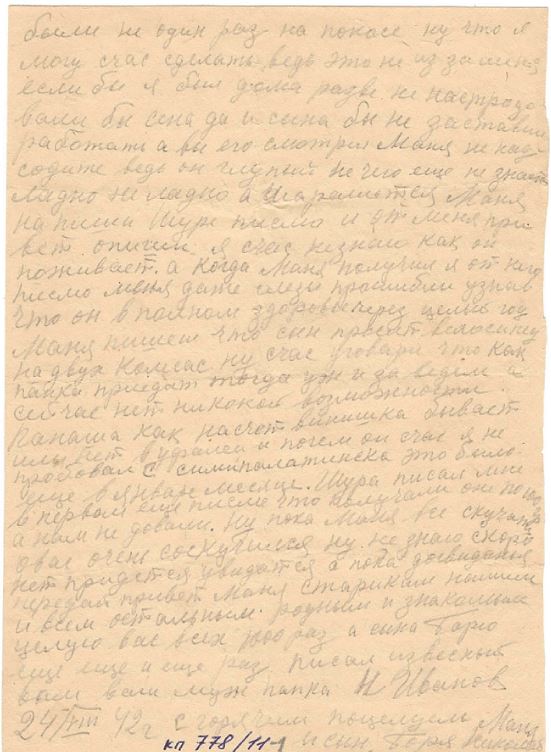 были не один раз на покосе ну что я
могу счас сделать ведь это не из за меня
если бы я был дома разве не
вали бы сена да и сына бы не заставил
работать а вы его смотри Маня не
ведь он глупый не чего еще не знает
ладно не ладно а Маня
на пиши Шуре писмо и от меня при
вет опиши. я счас незнаю как он
поживает. а когда Маня получил я от него
писмо меня даже слезы прошибли узнав
что он в полном здоровье через целый год
Маня пишеш что сын просит велосипед
на двух колесах ну счас уговари что как
папка приедит тогда уж и за ведем а
сейчас нет никокой возможности.
Папаша как насчот винишка бывает
или нет и почем он счас я не
пробовал с симипалатинска это было
еще в январе месяце. Шура писал мне
в первом еще писме что получали они по
а нам не довали. Ну пока Маня все скучать
о вас очень соскучился ну не знаю скоро
нет придется увидатся а пока досвиданья
передай привет Маня старикам нашим
и всем остальным. родным и знакомым
целую вас всех 1000 раз а сына Борю
еще еще и еще раз писал известный
вам ваш муж папка Н Иванов
24/VIII 42г с горячим поцелуем Маня
и сын Боря
кп 778/11-1